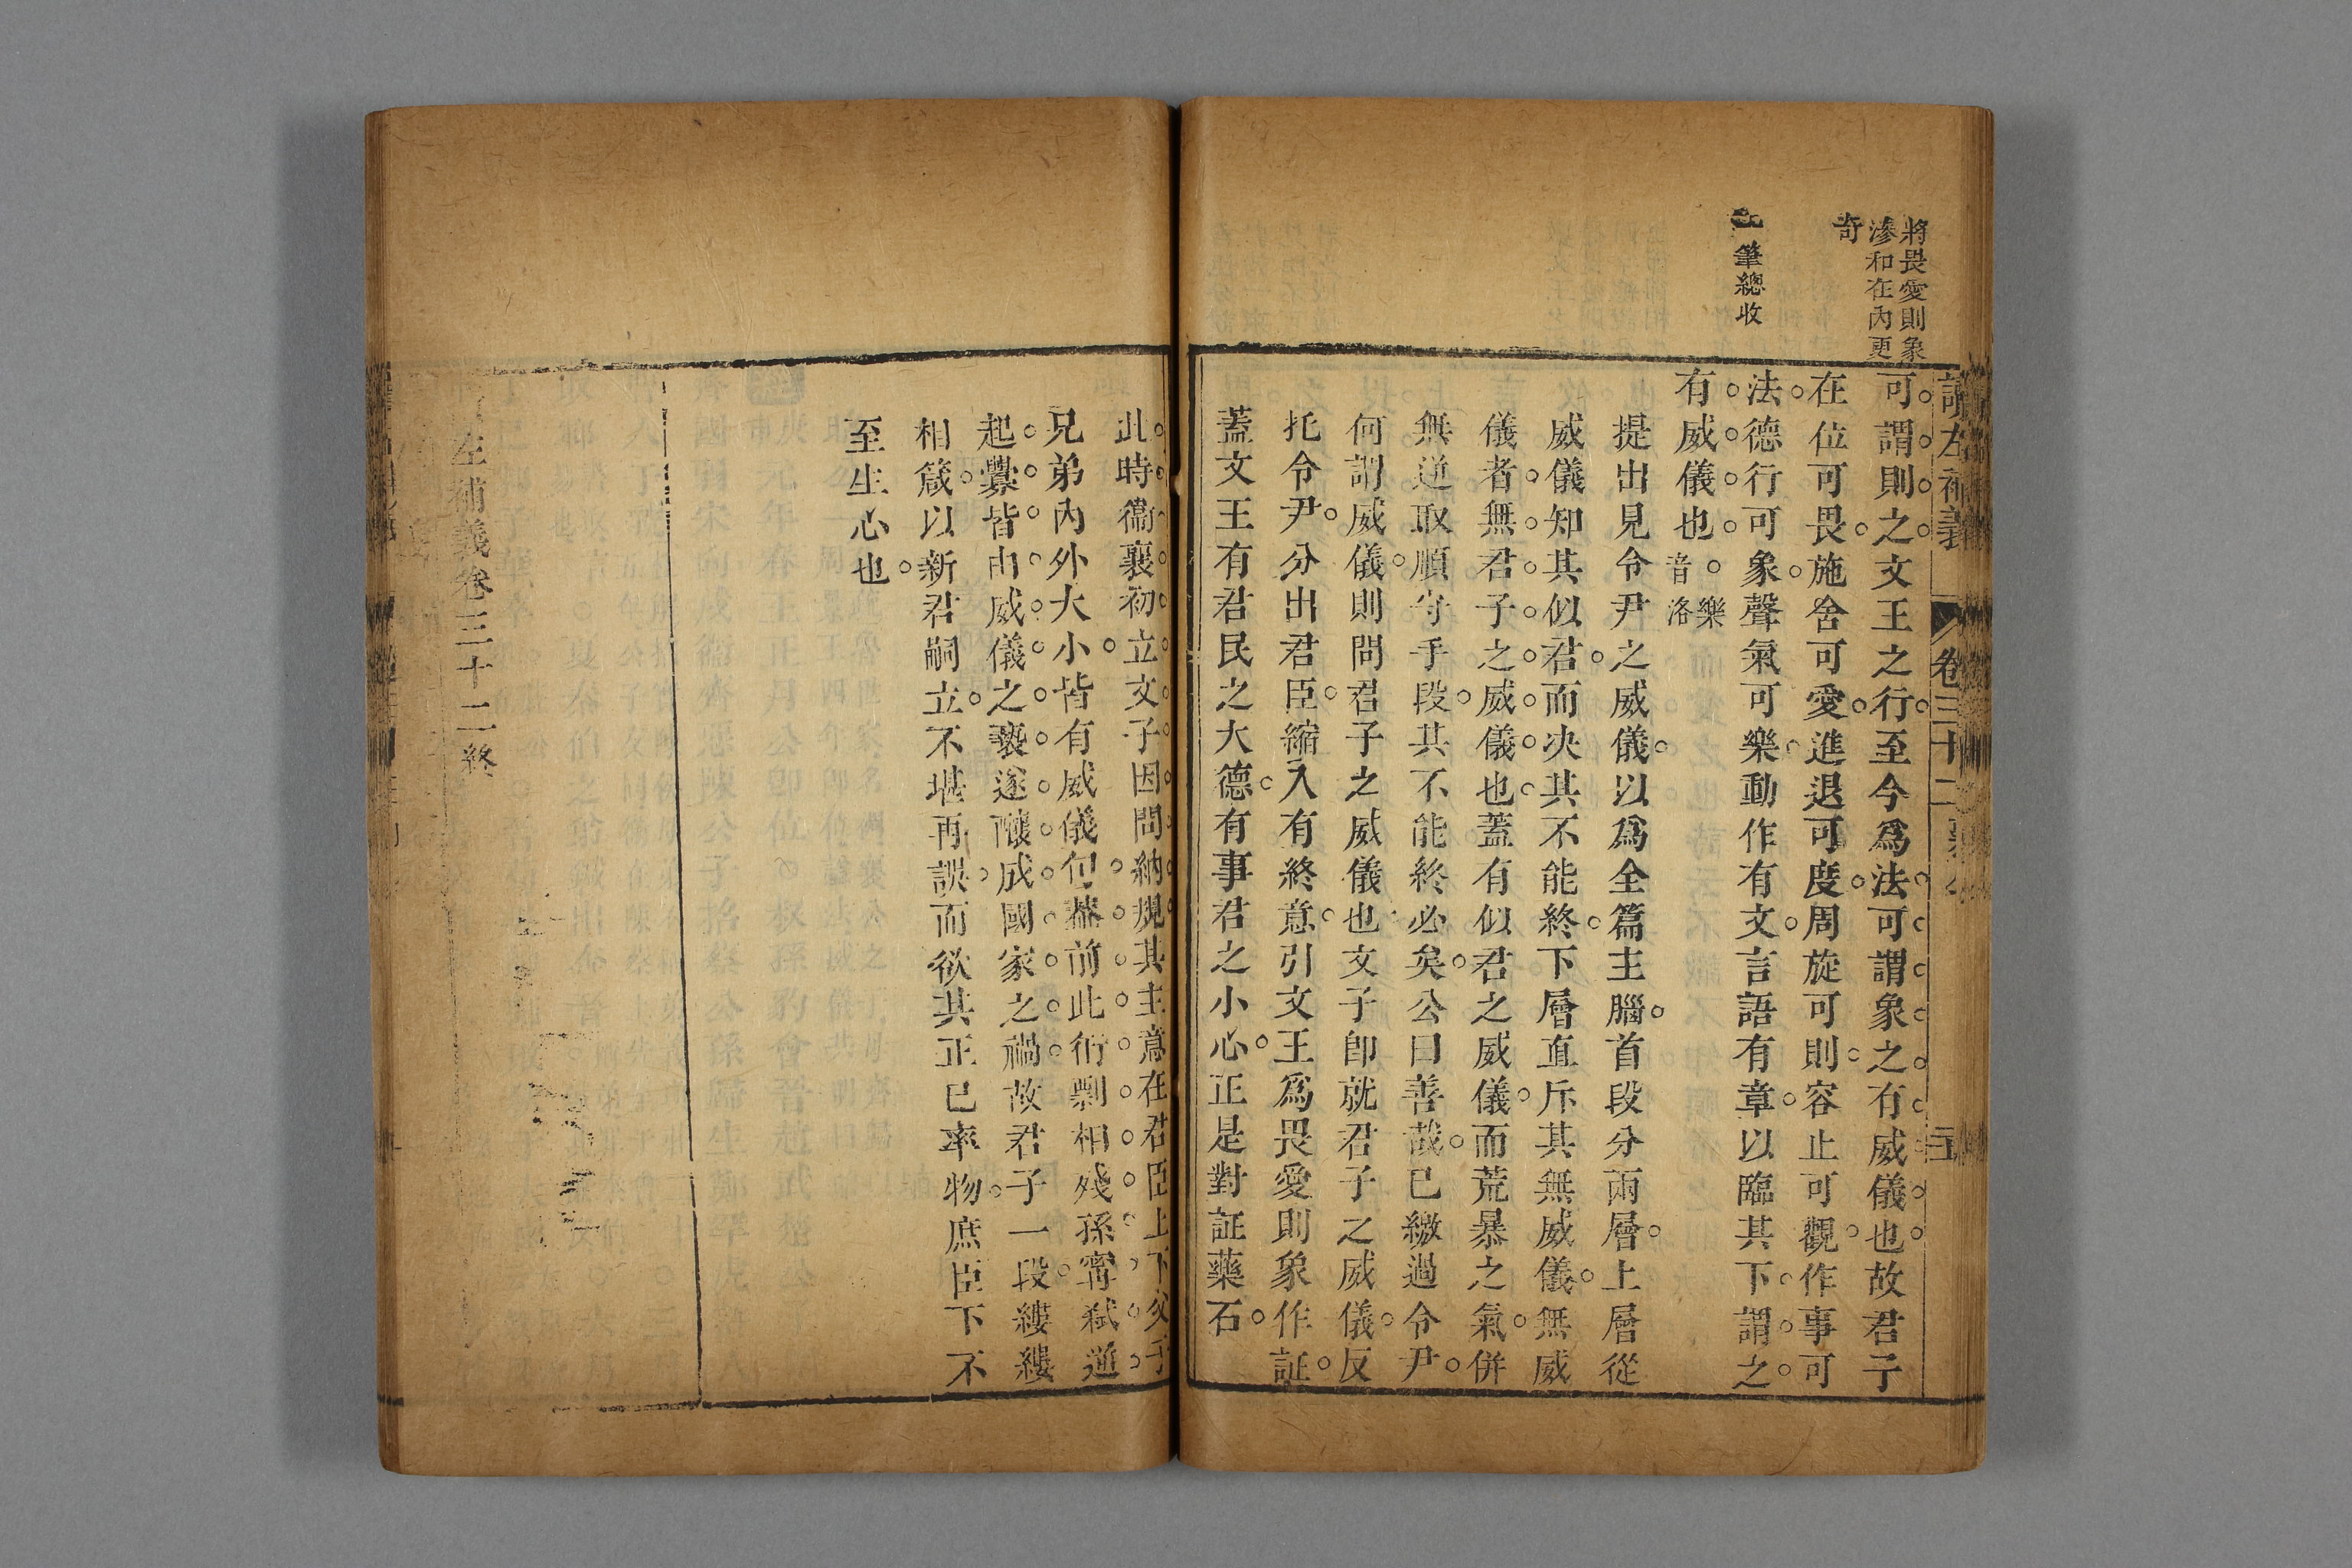 將畏愛則象
滲和在內更
奇
筆總收
可謂則之文王之行至今爲法可謂象之有威儀也故君子
在位可畏施舍可愛進退可度周旋可則容止可觀作事可
法德行可象聲氣可樂動作有文言語有章以臨其下謂之
有威儀也
樂
音洛
提出見令尹之威儀以爲全篇主腦首段分兩層上層從
威儀知其似君而决其不能終下層直斥其無威儀無威
儀者無君子之威儀也蓋有似君之威儀而荒暴之氣併
無逆取順守手段其不能終必矣公曰善哉已繳過令尹
何謂威儀則問君子之威儀也文子卽就君子之威儀反
托令尹分出君臣縮入有終意引文王爲畏愛則象作証
蓋文王有君民之大德有事君之小心正是對証藥石
讀左補義
卷三十二
此時衞襄初立文子因問納規其主意在君臣上下父子
兄弟內外大小皆有威儀包蓋前此衎剽相殘孫甯弑逆
起釁皆由威儀之褻遂釀成國家之禍故君子一段縷縷
相箴以新君嗣立不堪再誤而欲其正已率物庶臣下不
至生心也
左補義卷三十二終